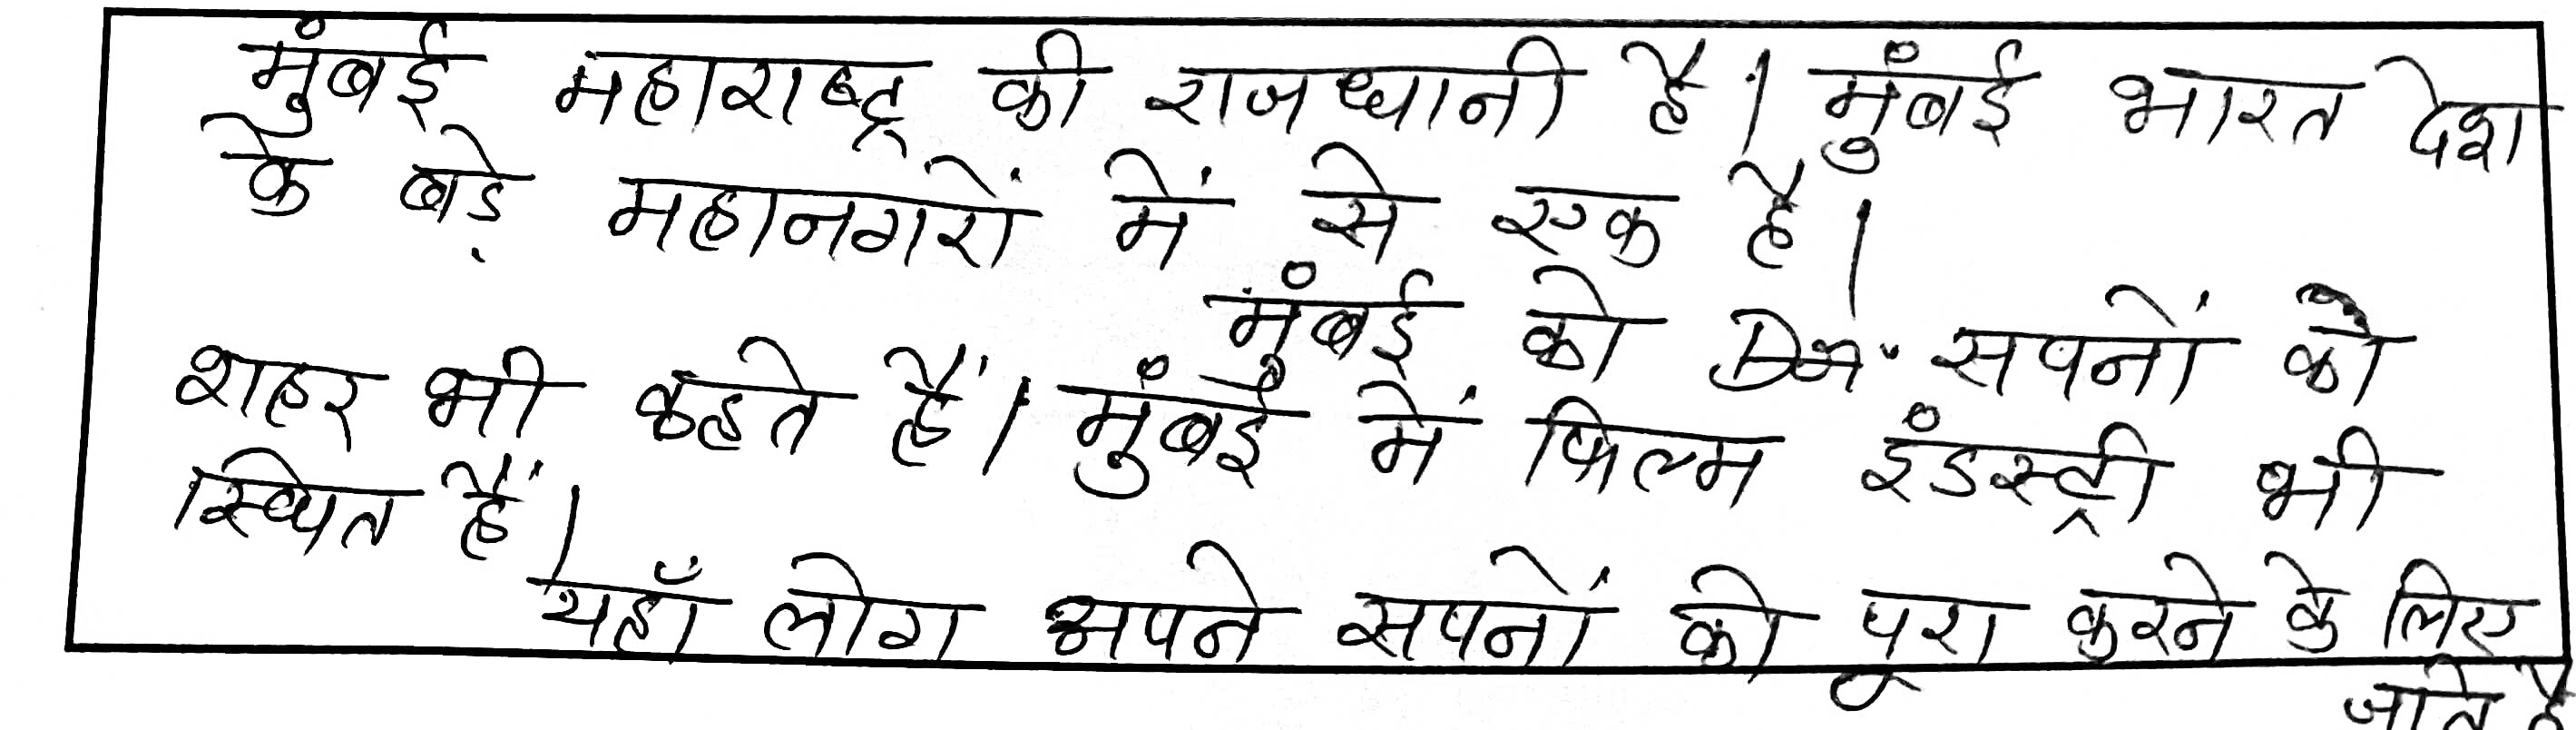 मुंबई महाराष्ट्र की राजधानी है। मुंबई भारत देश
के बड़े महानगरों में से एक है।
मुंबई को सपनों को
शहर भी कहते हैं। मुंबई में फिल्म इंडस्ट्री भी
स्थित हैं।
यहाँ लोग अपने सपनों को पूरा करने के लिए
जाते है